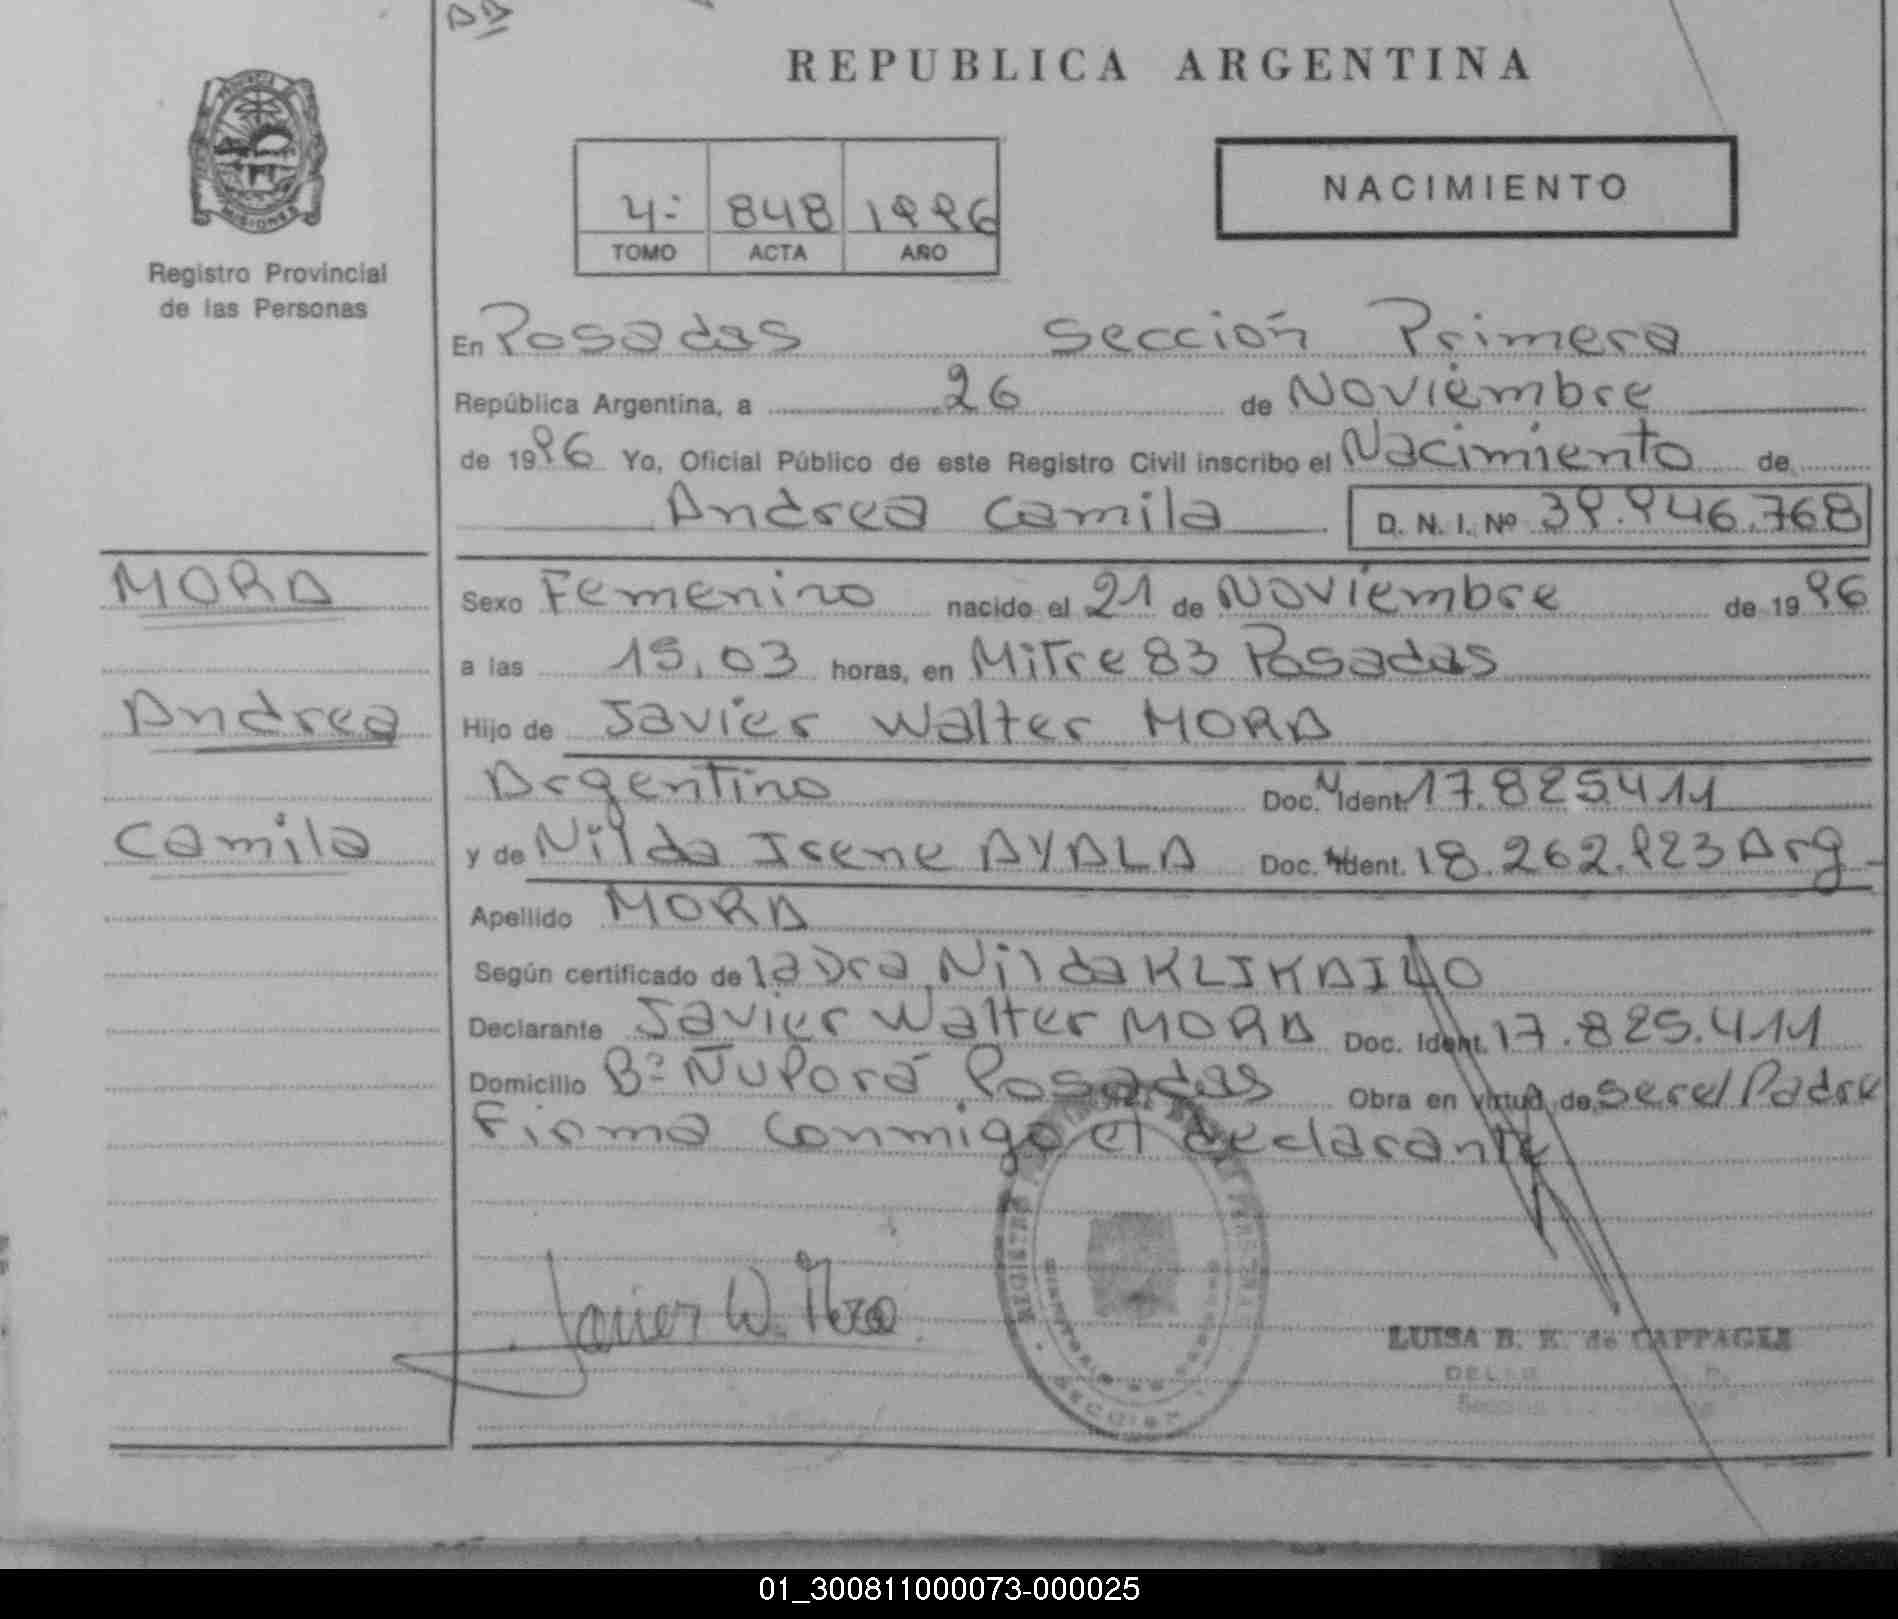 REPUBLICA ARGENTINA
PROVINCIA
MISIONES
Registro Provincial
de las Personas
4º 848 1996
TOMO ACTA AÑO
NACIMIENTO
En Posadas Sección Primera
República Argentina, a 26 de Noviembre
de 1996 Yo, Oficial Público de este Registro Civil inscribo el Nacimiento de
Andrea Camila D. N. I. Nº 39.946.768
MORA
Andrea
Camila
Sexo Femenino nacido el 21 de Noviembre de 1996
a las 15,03 horas, en Mitre 83 Posadas
Hijo de Javier Walter MORA
Argentino Doc. N Ident. 17.825411
y de Nilda Irene AYALA Doc. Ident. 18.262.923 Arg
Apellido MORA
Según certificado de la Dra Nilda
Declarante Javier Walter MORA Doc. Ident. 17.825.411
Domicilio Bº Ñu Porá Posadas Obra en virtud de ser el Padre
Firma conmigo el declarante
Javier W. Mora
LUISA B. K. de CAPPAGLI
01_300811000073-000025